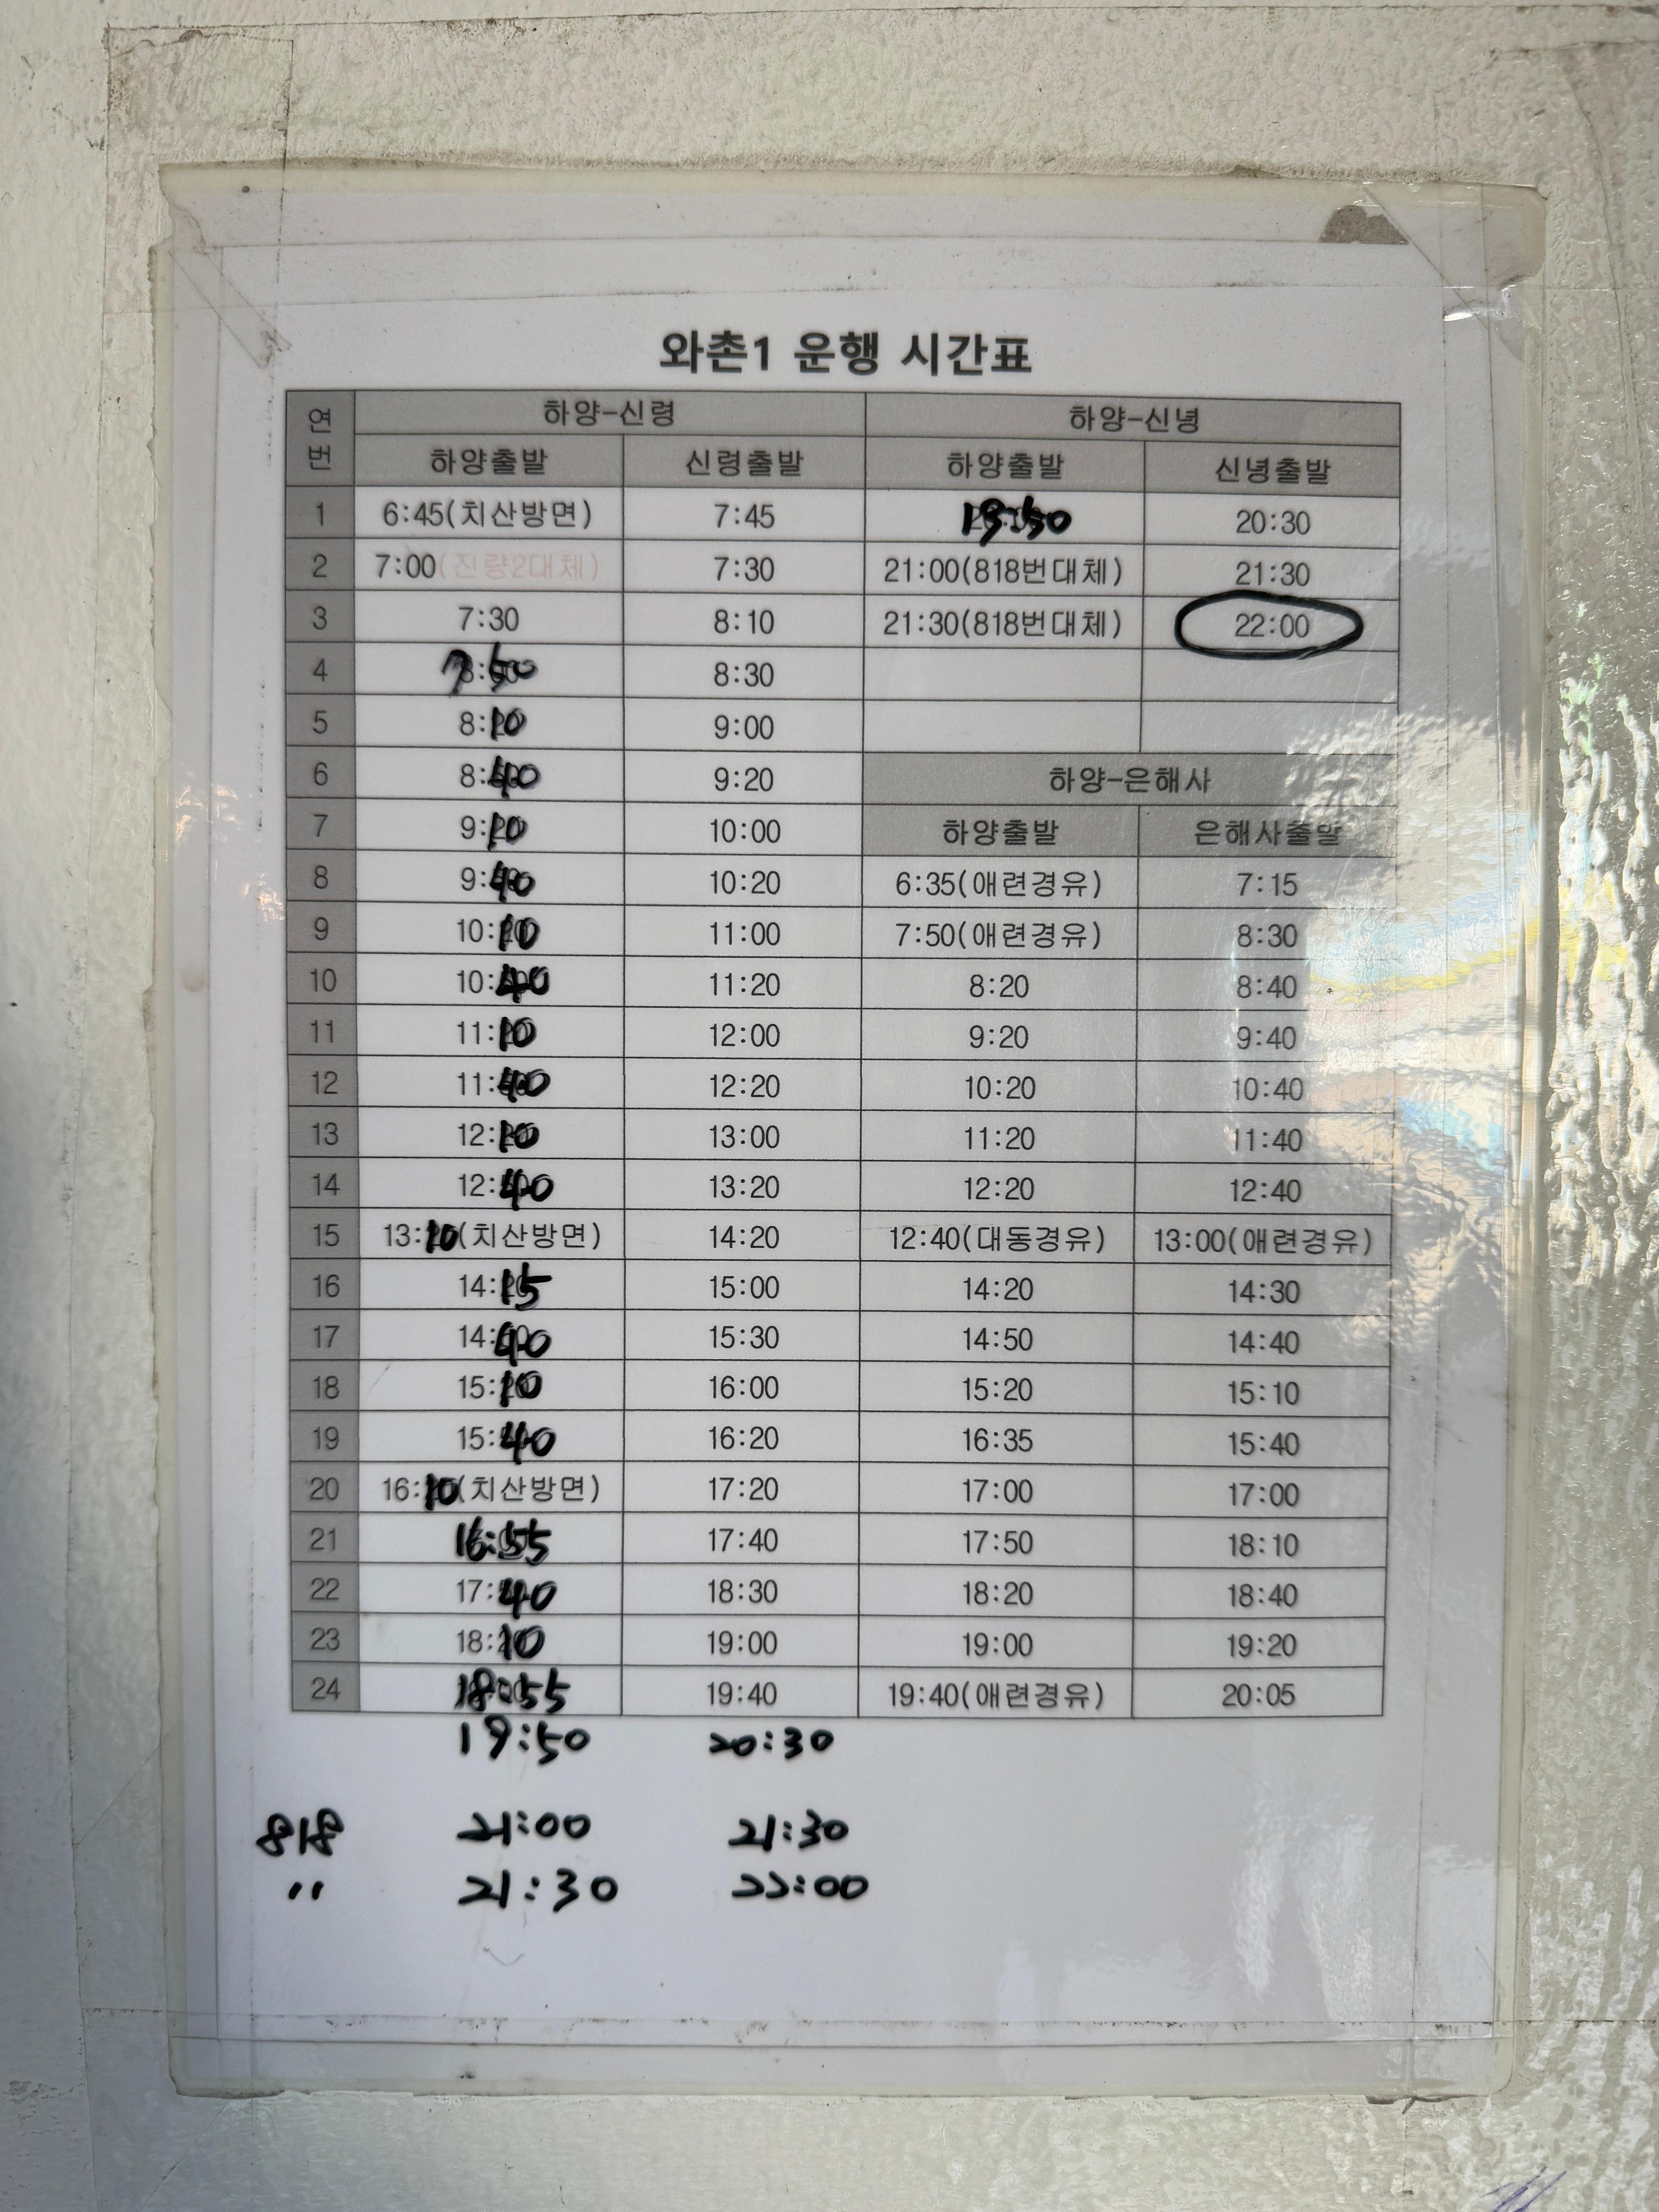 와촌1 운행 시간표
연번 하양-신령 하양-신녕
하양출발 신령출발 하양출발 신녕출발
1 6:45(치산방면) 7:45 19:50 20:30
2 7:00(진량2대체) 7:30 21:00(818번대체) 21:30
3 7:30 8:10 21:30(818번대체) 22:00
4 7:50 8:30
5 8:10 9:00
6 8:40 9:20 하양-은해사
7 9:10 10:00 하양출발 은해사출발
8 9:40 10:20 6:35(애련경유) 7:15
9 10:10 11:00 7:50(애련경유) 8:30
10 10:40 11:20 8:20 8:40
11 11:10 12:00 9:20 9:40
12 11:40 12:20 10:20 10:40
13 12:10 13:00 11:20 11:40
14 12:40 13:20 12:20 12:40
15 13:10(치산방면) 14:20 12:40(대동경유) 13:00(애련경유)
16 14:15 15:00 14:20 14:30
17 14:40 15:30 14:50 14:40
18 15:10 16:00 15:20 15:10
19 15:40 16:20 16:35 15:40
20 16:10(치산방면) 17:20 17:00 17:00
21 16:55 17:40 17:50 18:10
22 17:40 18:30 18:20 18:40
23 18:10 19:00 19:00 19:20
24 18:55 19:40 19:40(애련경유) 20:05
19:50 20:30
818 21:00 21:30
〃 21:30 22:00